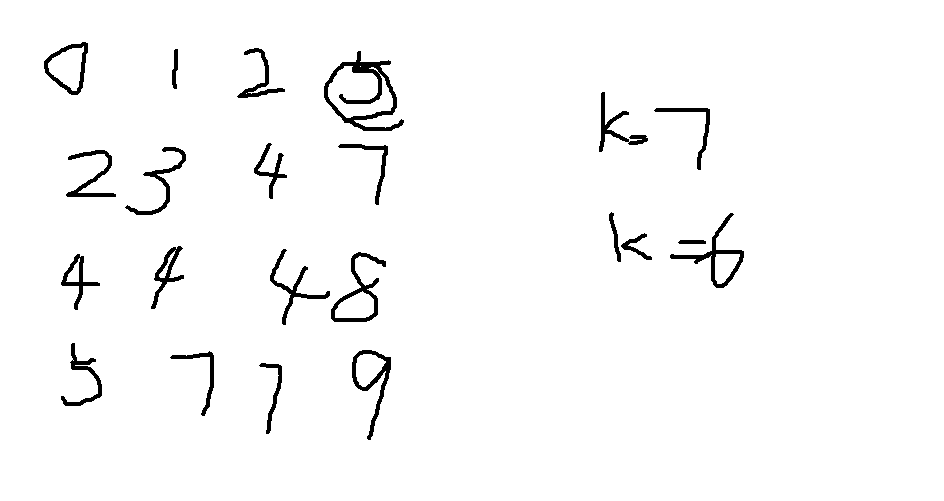 0 1 2 5
2 3 4 7
4 4 4 8
5 7 7 9
k=7
k=6